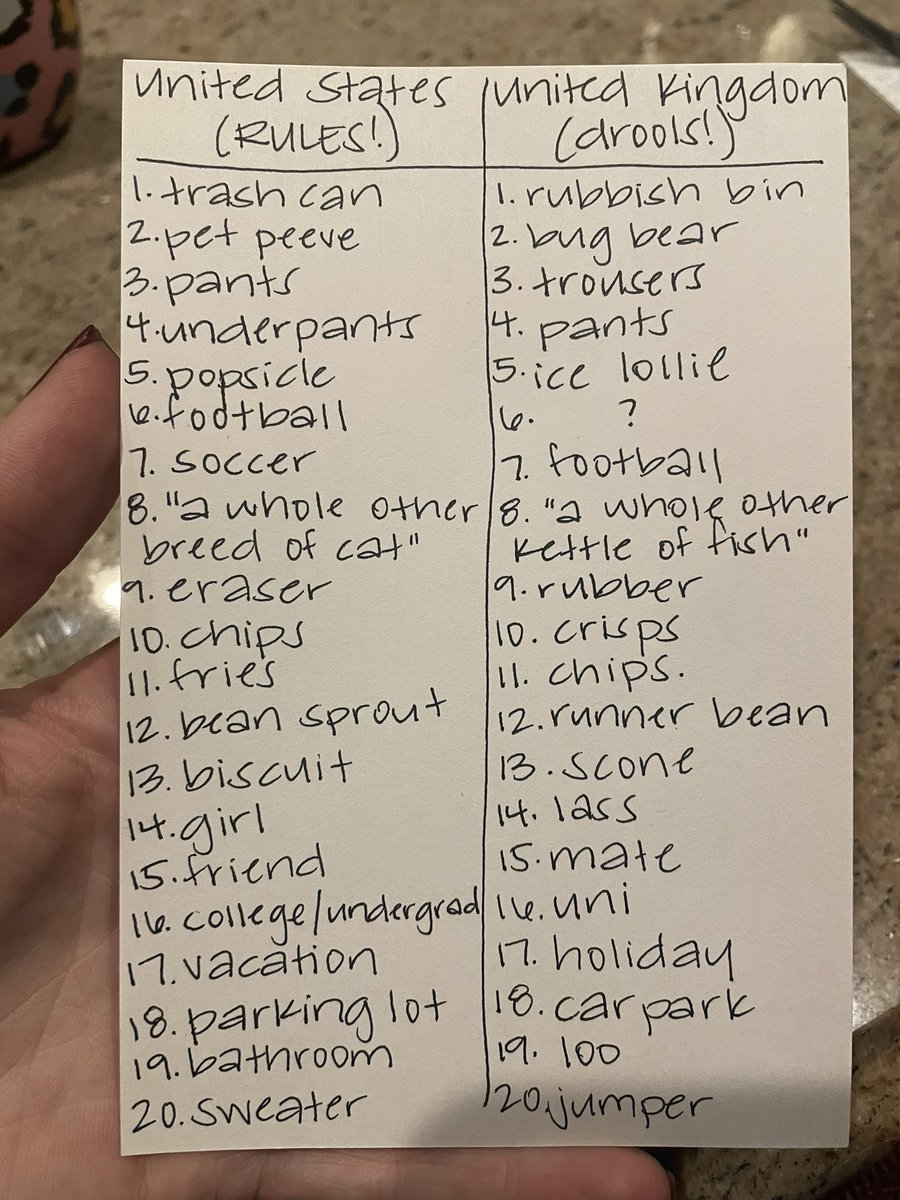 United States
(RULES!)
1. trash can
2. pet peeve
3. pants
4. underpants
5. popsicle
6. football
7. soccer
8. "a whole other
breed of cat"
9. eraser
10. chips
11. fries
12. bean sprout
13. biscuit
14. girl
15. friend
16. college/undergrad
17. vacation
18. parking lot
19. bathroom
20. sweater
United Kingdom
(drools!)
1. rubbish bin
2. bug bear
3. trousers
4. pants
5. ice lollie
6. ?
7. football
8. "a whole other
kettle of fish"
9. rubber
10. crisps
11. chips.
12. runner bean
13. scone
14. lass
15. mate
16. uni
17. holiday
18. car park
19. loo
20. jumper